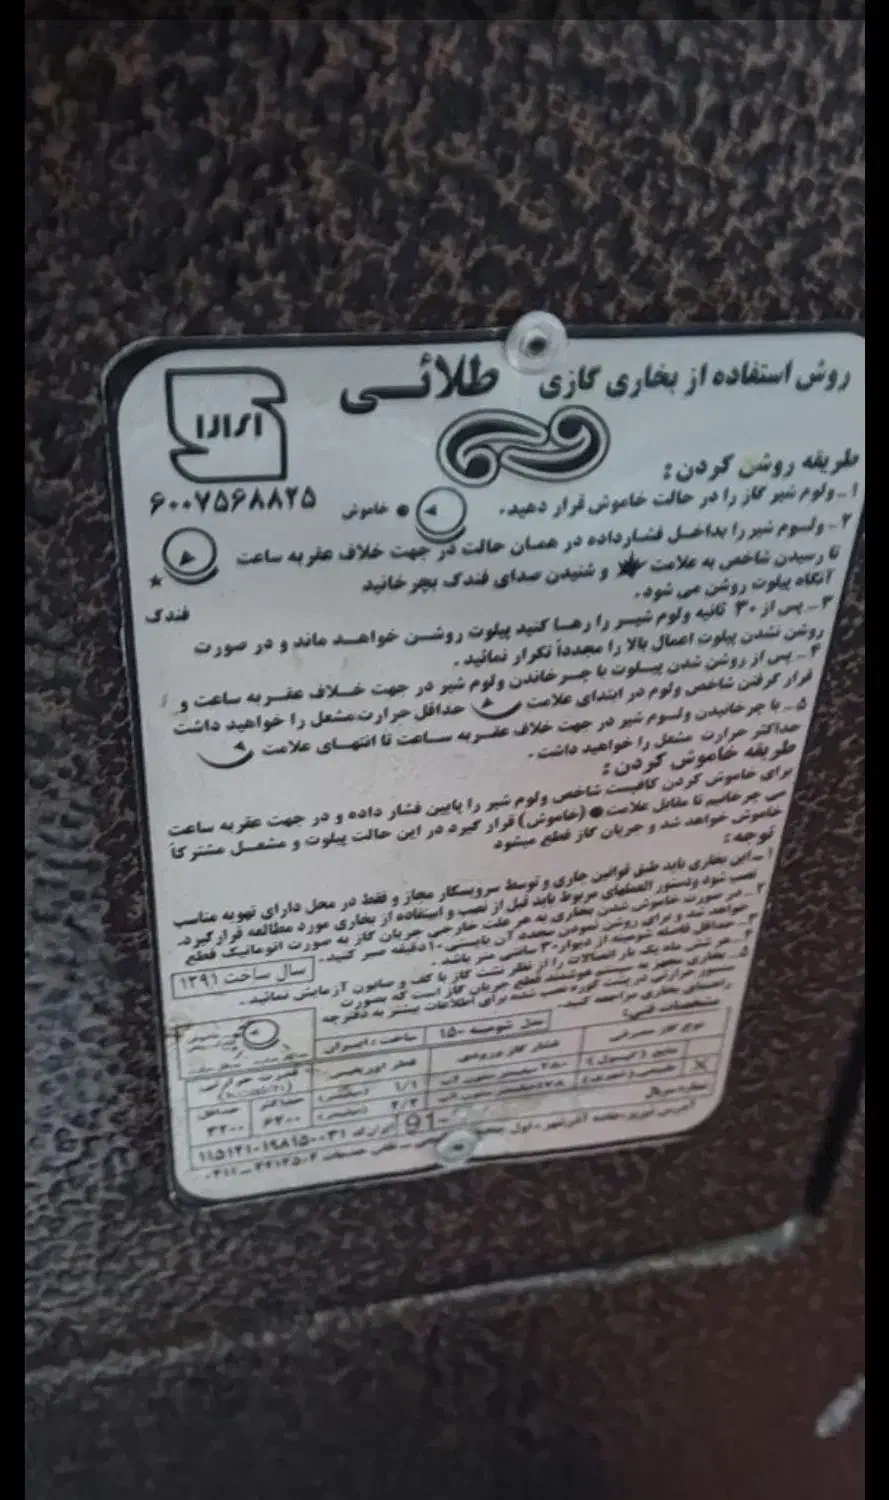 روش استفاده از بخاری گازی طلائـی
طریقه روشن کردن:
۶۰۰۷۵۶۸۸۲۵
۱ـ ولوم شیر گاز را در حالت خاموش قرار دهید. ● خاموش
۲ـ ولوم شیر را بداخل فشارداده در همان حالت در جهت خلاف عقربه ساعت
تا رسیدن شاخص به علامت ★ و شنیدن صدای فندک بچرخانید
آنگاه پیلوت روشن می شود.
★ فندک
۳ـ پس از ۳۰ ثانیه ولوم شیر را رها کنید پیلوت روشن خواهد ماند و در صورت
روشن نشدن پیلوت اعمال بالا را مجدداً تکرار نمائید.
۴ـ پس از روشن شدن پیلوت با چرخاندن ولوم شیر در جهت خلاف عقربه ساعت و
قرار گرفتن شاخص ولوم در ابتدای علامت حداقل حرارت مشعل را خواهید داشت
۵ـ با چرخانیدن ولوم شیر در جهت خلاف عقربه ساعت تا انتهای علامت
حداکثر حرارت مشعل را خواهید داشت.
طریقه خاموش کردن:
برای خاموش کردن کافیست شاخص ولوم شیر را پایین فشار داده و در جهت عقربه ساعت
می چرخانیم تا مقابل علامت ● (خاموش) قرار گیرد در این حالت پیلوت و مشعل مشترکاً
خاموش خواهد شد و جریان گاز قطع میشود
توجه:
۱ـ این بخاری باید طبق قوانین جاری و توسط سرویسکار مجاز و فقط در محل دارای تهویه مناسب
نصب شود ودستور العملهای مربوط باید قبل از نصب و استفاده از بخاری مورد مطالعه قرار گیرد.
۲ـ در صورت خاموش شدن بخاری به هر علت خارجی جریان گاز به صورت اتوماتیک قطع
خواهد شد و برای روشن نمودن مجدد آن بایستی ۱۰ دقیقه صبر کنید.
۳ـ حداقل فاصله شومینه از دیوار ۳۰ سانتی متر باشد.
۴ـ هر شش ماه یک بار اتصالات را از نظر نشت گاز با کف و صابون آزمایش نمائید.
سال ساخت ۱۳۹۱
۵ـ بخاری مجهز به سیستم هوشمند قطع جریان گاز است که بصورت
سنسور حرارتی در پشت کوره نصب شده برای اطلاعات بیشتر به دفترچه
راهنمای بخاری مراجعه کنید.
مشخصات فنی:
مدل شومینه ۱۵۰
ساخت: ایران
نوع گاز مصرفی
فشار گاز ورودی
قطر اوریفیس
قدرت حرارتی
حداکثر
حداقل
مایع (کپسول)
۱/۱ (میلیمتر)
طبیعی (شهری)
۲/۲ (میلیمتر)
۶۲۰۰
۳۲۰۰
91-
ایران کد ۱۱۵۱۲۱۰۱۹۸۱۵۰۰۳۱